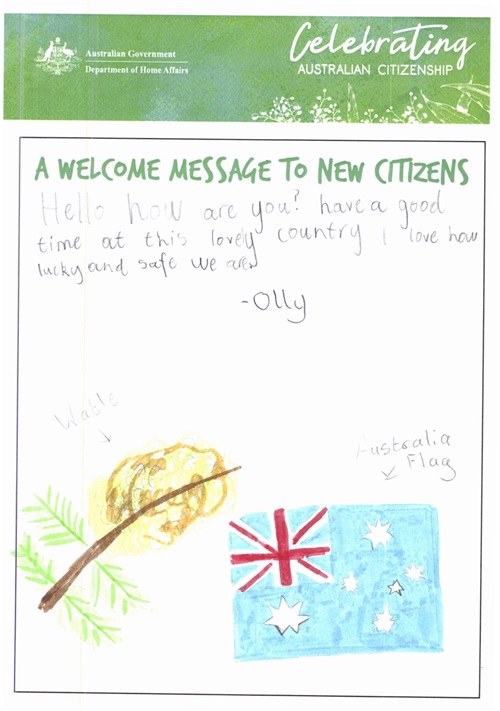 Australian Government
Department of Home Affairs
Celebrating
AUSTRALIAN CITIZENSHIP
A WELCOME MESSAGE TO NEW CITIZENS
Hello how are you? have a good
time at this lovely country I love how
lucky and safe we are
-Olly
Wattle
Australia
Flag